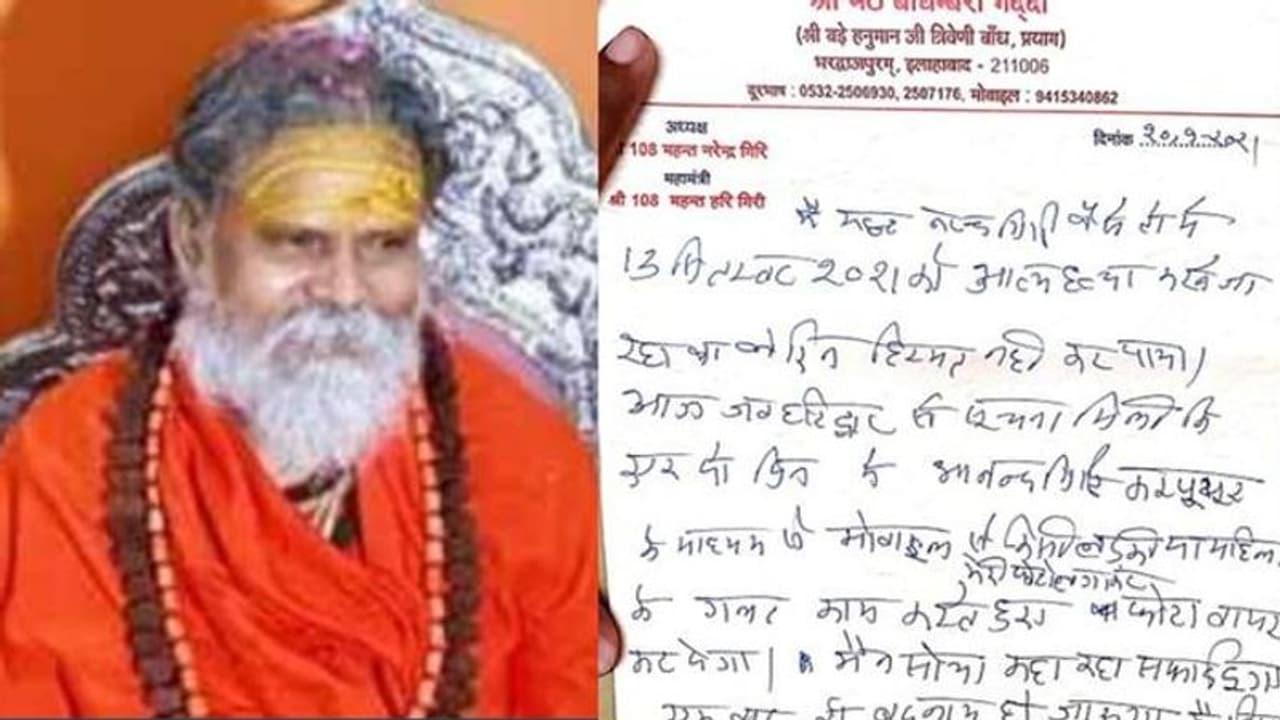 श्री मठ बाघम्बरी गद्दी
(श्री बड़े हनुमान जी त्रिवेणी बाँध, प्रयाग)
भरद्वाजपुरम्, इलाहाबाद - 211006
दूरभाष : 0532-2506930, 2507176, मोबाइल : 9415340862
अध्यक्ष
108 महन्त नरेन्द्र गिरि
दिनांक
महामंत्री
श्री 108 महन्त हरि गिरी
मैं
13 सितम्बर २०२१ को आत्महत्या करने जा
रहा था लेकिन हिम्मत नहीं कर पाया।
आज जब हरिद्वार से सूचना मिली कि
एक दो दिन में आनन्द गिरि कम्प्यूटर
के माध्यम से मोबाइल से किसी लड़की या महिला
मेरी फोटो लगाकर
के गलत काम करते हुए फोटो वायरल
कर देगा। मैंने सोचा कहा तक सफाई
एक बार तो बदनाम हो जाऊंगा